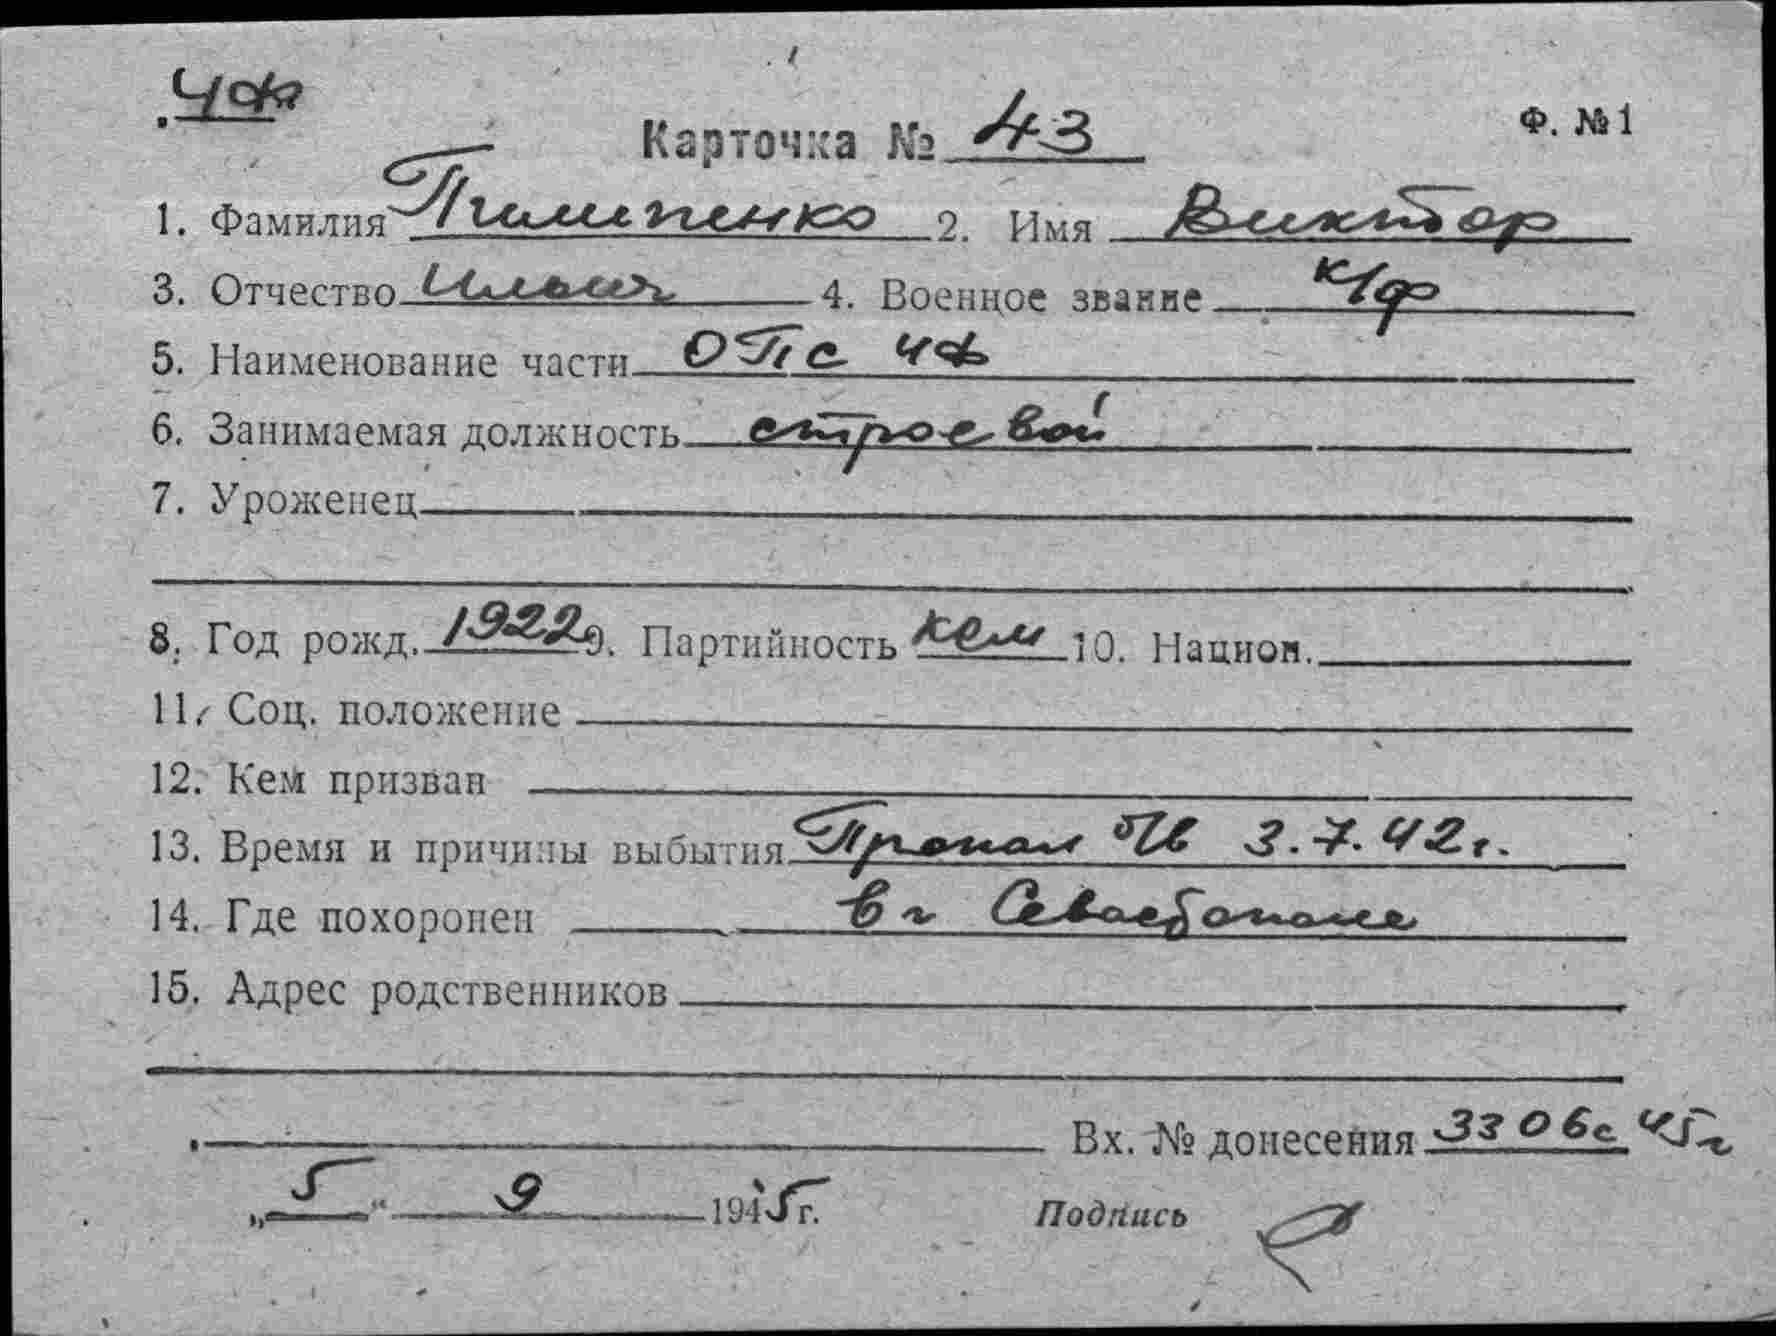 ЧФ
Карточка № 43 Ф. №1
1. Фамилия Пилипенко 2. Имя Виктор
3. Отчество Ильич 4. Военное звание к/ф
5. Наименование части ОПС ЧФ
6. Занимаемая должность строевой
7. Уроженец
8. Год рожд. 1922 9. Партийность 10. Национ.
11. Соц. положение
12. Кем призван
13. Время и причины выбытия Пропал 3.7.42г.
14. Где похоронен в г Севастополе
15. Адрес родственников
Вх. № донесения 3306с 45г
„5“ 9 1945г. Подпись